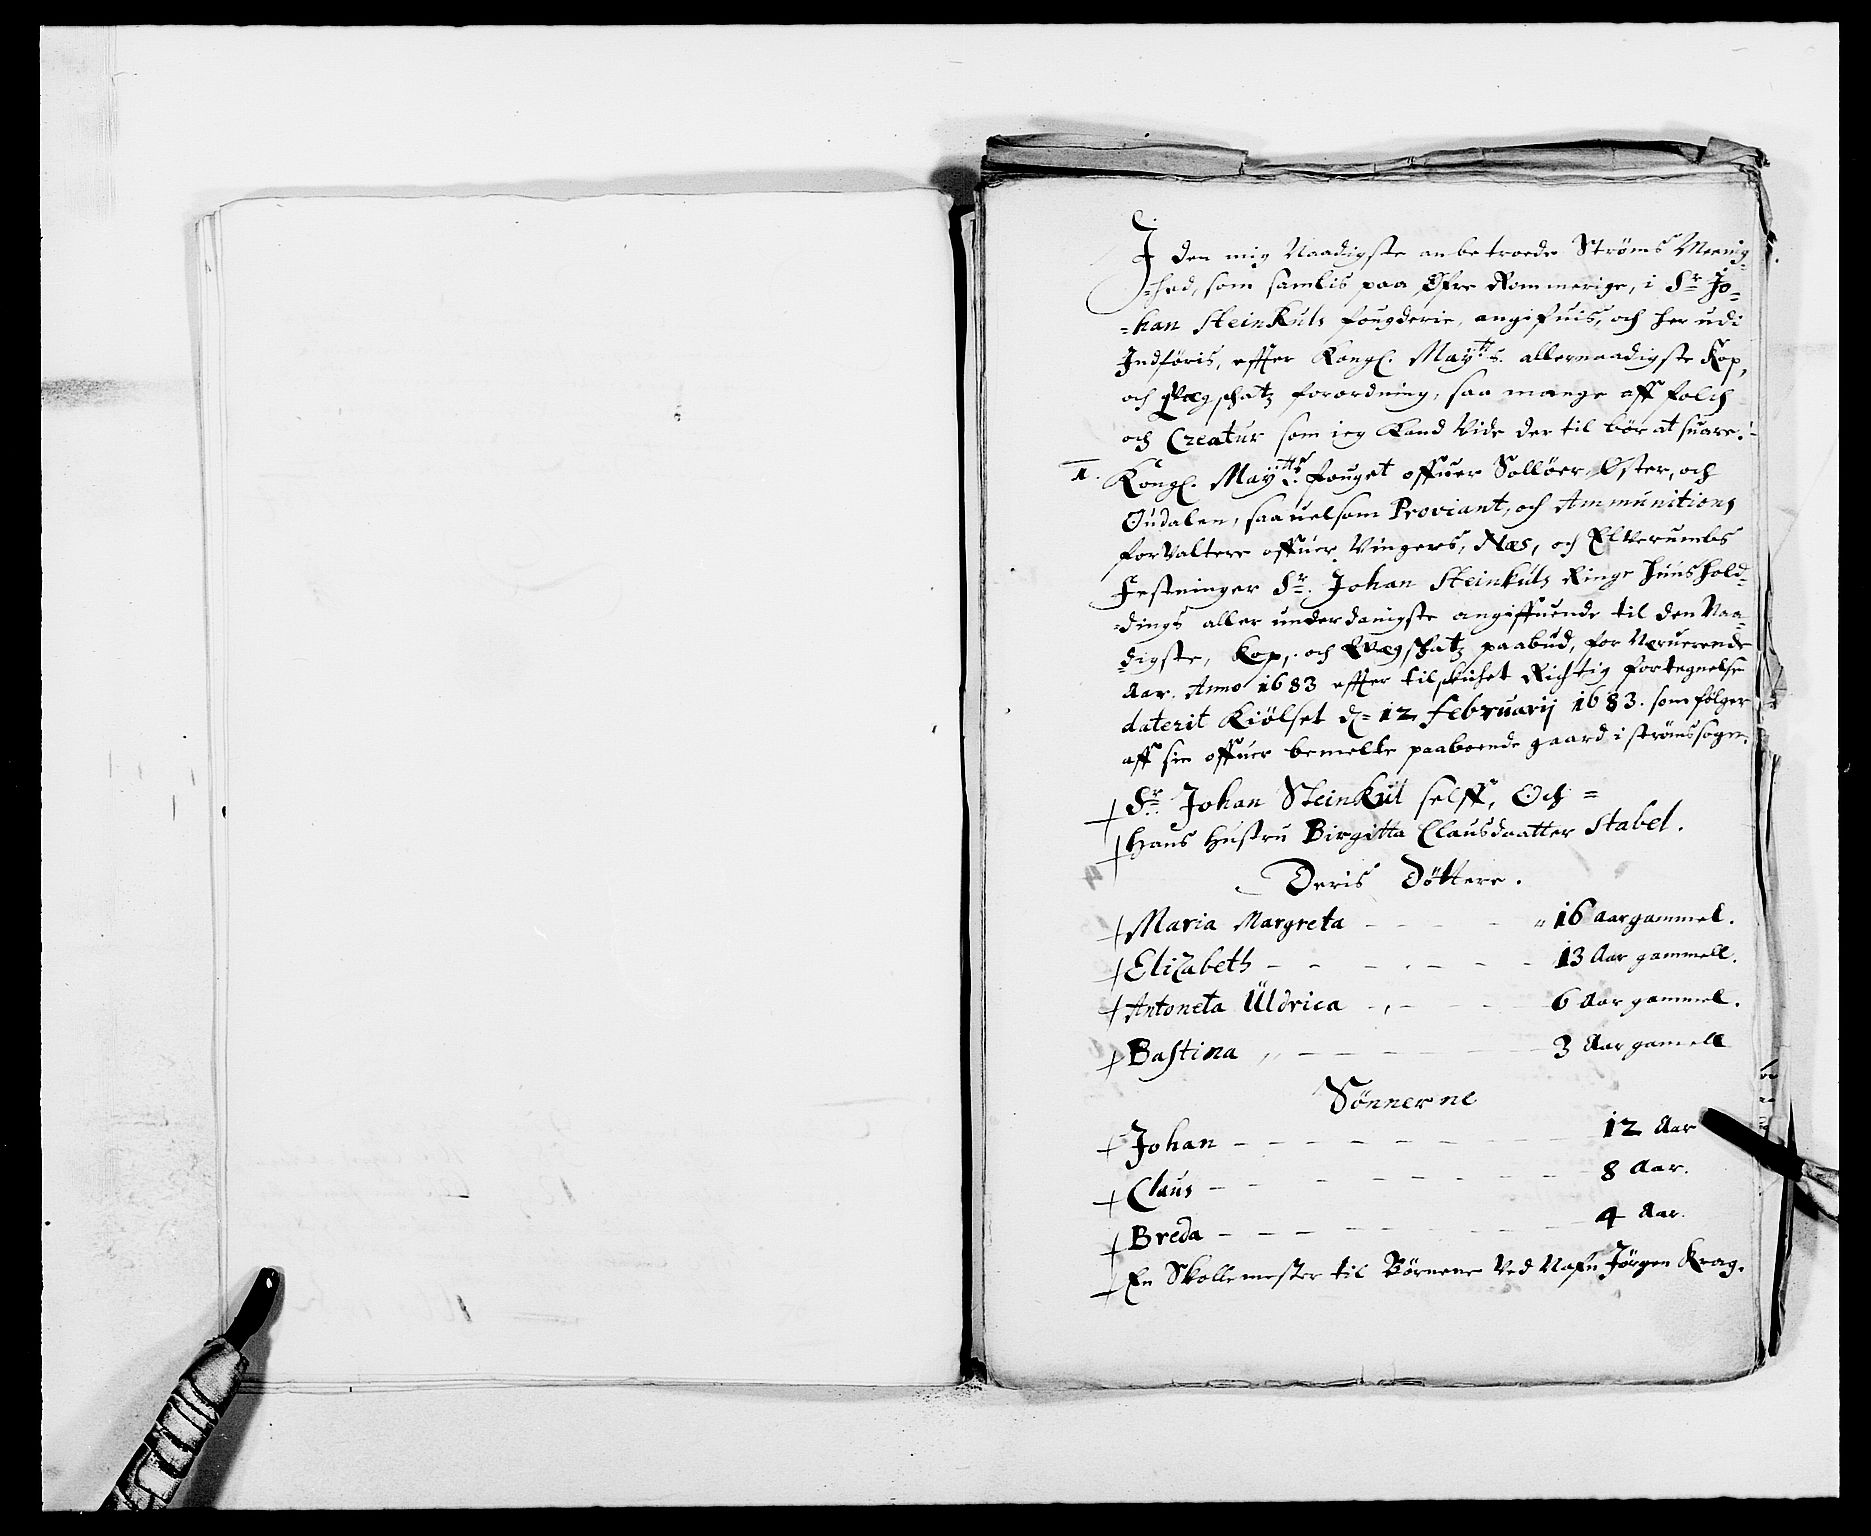 I den mig Naadigste anbetroede Strøms Menig-
-hed, som samlis paa Øfre Rommerige, i Sr Jo-
-han SteinKuls fougderie, angifuis, och her udi
Indføris, effter Kongl. Maytts. allernaadigste Kop,
och qvægschatz forordning, saa mange aff folch
och Creatur som ieg Kand Vide der til bør at suare.
1. Kongl. Maytts. fouget offuer Solløer, Øster, och
Oudalen, saauelsom Proviant, och Ammunitions
forValtere offuer Vingers, Næs, och Elverumbs
Festninger Sr. Johan Steinkuls Ringe huushold-
-dings aller underdanigste angiffuende til den Naa-
digste, Kop, och Qvægschatz paabud, for Nærværende
Aar. Anno 1683 effter tilskichet Richtig fortegnelse
daterit Kiølset d= 12 februarij 1683. som følger
aff sin offuer bemelte paaboende gaard i strømssogn.
Sr. Johan SteinKul selff, Och =
Hans Hustru Birgitta Clausdaatter Stabel.
Deris Døttere.
Maria Margreta - - - - 16 Aar gammel.
Elizabeth - - - - - - 13 Aar gammell.
Antoneta Üldrica - - - 6 Aar gammel.
Bastina - - - - - - 3 Aar gamell
Sønnerne
Johan - - - - - - - 12 Aar
Claus - - - - - - - 8 Aar.
Breda - - - - - - - 4 Aar.
En Skollemester til Børnene Ved Nafn Jørgen Krag.